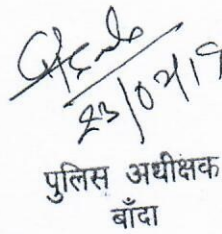 23/02/19
पुलिस अधीक्षक
बाँदा